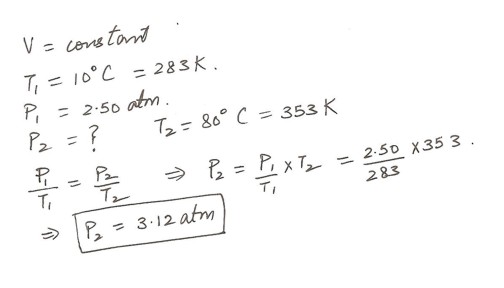 V = constant
T₁ = 10°C = 283K.
P₁ = 2.50 atm.
P₂ = ? T₂ = 80° C = 353 K
P₁/T₁ = P₂/T₂ ⇒ P₂ = P₁/T₁ × T₂ = 2.50/283 × 353.
⇒ P₂ = 3.12 atm